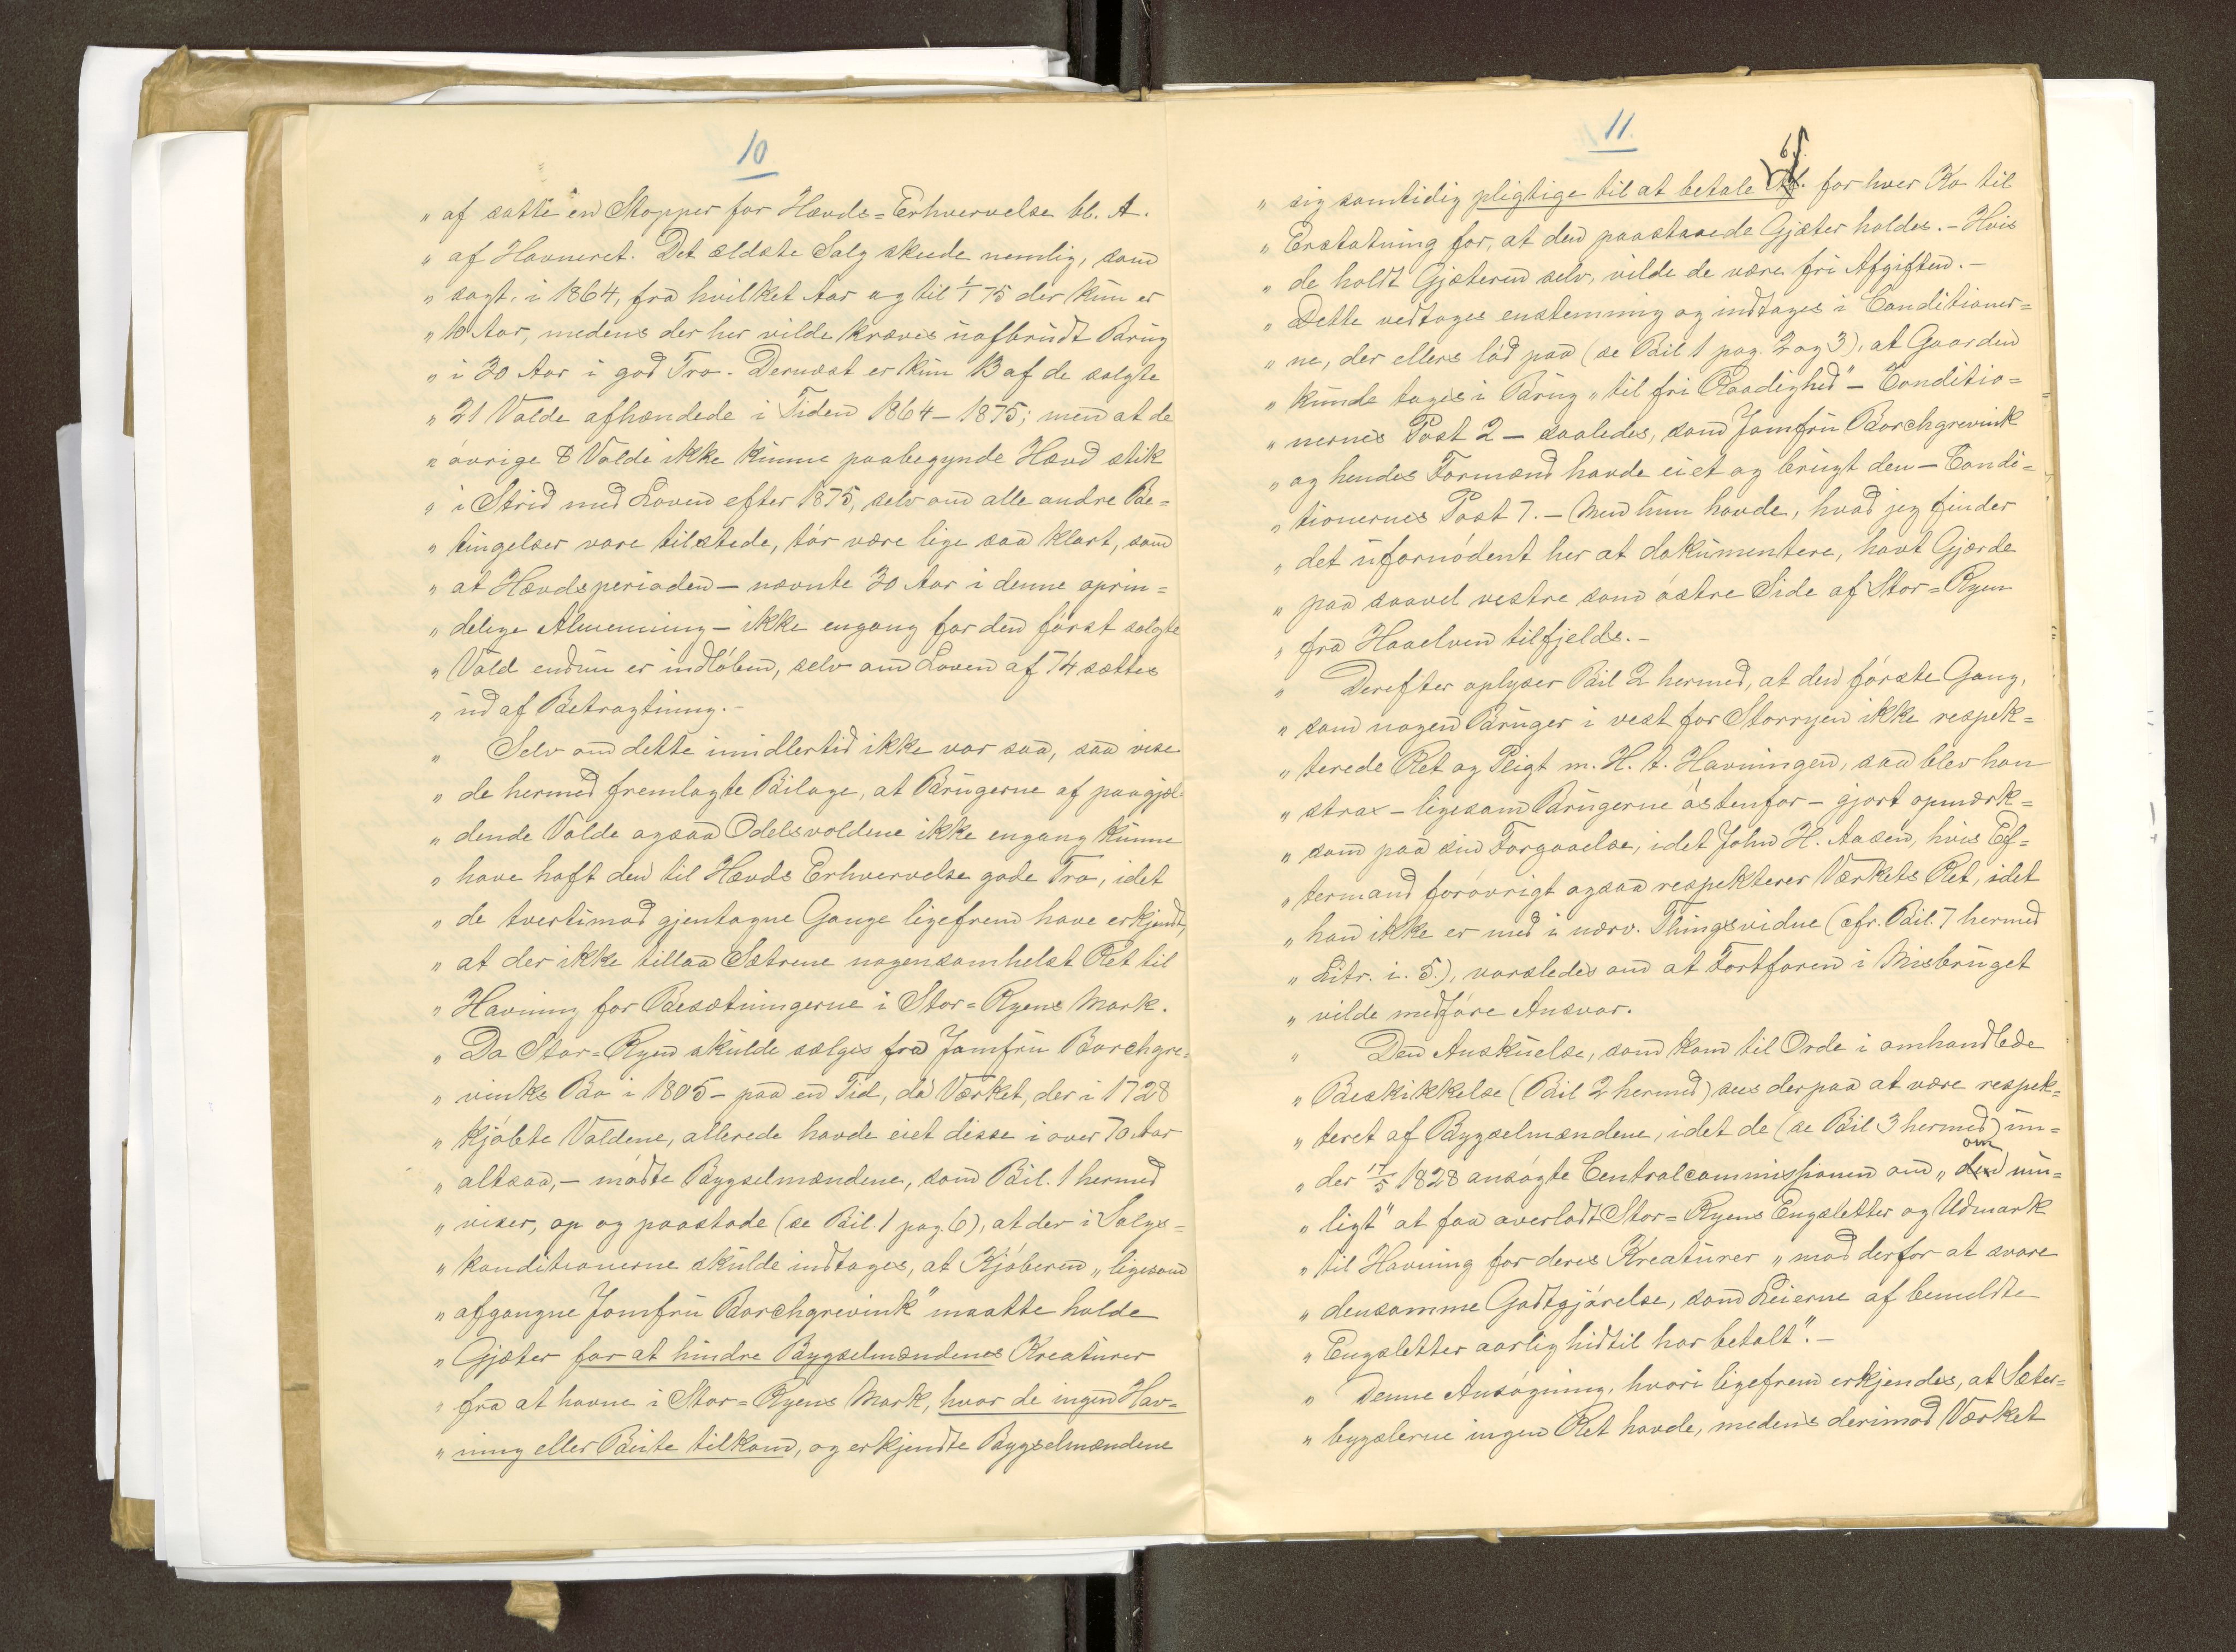 10
„ af satte en Stopper for Hævds=Erhvervelse bl. A.
„ af Havneret. Det ældste Salg skede nemlig, som
„ sagt, i 1864, fra hvilket Aar og til 1/1 75 der kun er
„ 10 Aar, medens der her vilde kræves uafbrudt Brug
„ i 30 Aar i god Tro. Dernæst er kun 13 af de solgte
„ 21 Volde afhændede i Tiden 1864–1875; men at de
„ øvrige 8 Volde ikke kunne paabegynde Hævd stik
„ i Strid med Loven efter 1875, selv om alle andre Be=
„ tingelser vare tilstede, tør være lige saa klart, som
„ at Hævdsperioden – nævnte 30 Aar i denne oprin=
„ delige Almenning – ikke engang for den først solgte
„ Vold endnu er indløben, selv om Loven af 74 sættes
„ ud af Betragtning.–
„ Selv om dette imidlertid ikke var saa, saa vise
„ de hermed fremlagte Bilage, at Brugerne af paagjæl-
„ dende Volde ogsaa Odelsvoldene ikke engang kunne
„ have haft den til Hævds Erhvervelse gode Tro, idet
„ de tvertimod gjentagne Gange ligefrem have erkjendt,
„ at der ikke tillaa Sætrene nogensomhelst Ret til
„ Havning for Besætningerne i Stor=Ryens Mark.
„ Da Stor=Ryen skulde sælges fra Jomfru Borchgre=
„ vinks Bo i 1805 – paa en Tid, da Værket, der i 1728
„ kjøbte Voldene, allerede havde eiet disse i over 70 Aar
„ altsaa, – mødte Bygselmændene, som Bil. 1 hermed
„ viser, op og paastode (se Bil. 1 pag. 6), at der i Salgs=
„ konditionerne skulde indtages, at Kjøberen „ligesom
„ afgangne Jomfru Borchgrevink" maatte holde
„ Gjæter for at hindre Bygselmændenes Kreaturer
„ fra at havne i Stor=Ryens Mark, hvor de ingen Hav=
„ ning eller Beite tilkom, og erkjendte Bygselmændene
11.
6 ſ.
„ sig samtidig pligtige til at betale for hver Ko til
„ Erstatning for, at den paastaaede Gjæter holdes. – Hvis
„ de holdt Gjæteren selv, vilde de være fri Afgiften. –
„ Dette vedtages enstemmig og indtages i Conditioner=
„ ne, der ellers lød paa (se Bil 1 pag. 2 og 3), at Gaarden
„ kunde tages i Brug „til fri Raadighed" – Conditio=
„ nernes Post 2 – saaledes, som Jomfru Borchgrevink
„ og hendes Formænd havde eiet og brugt den – Condi=
„ tionernes Post 7. – Men hun havde, hvad jeg finder
„ det ufornødent her at dokumentere, havt Gjærde
„ paa saavel vestre som østre Side af Stor=Ryen
„ fra Haaelven tilfjelds. –
„ Derefter oplyser Bil 2 hermed, at den første Gang,
„ som nogen Bruger i vest for Storryen ikke respek=
„ terede Ret og Pligt m. H. t. Havningen, saa blev han
„ strax – ligesom Brugerne østenfor – gjort opmærk=
„ som paa sin Forgaaelse, idet John H. Aasen, hvis Ef=
„ termand forøvrigt ogsaa respekterer Værkets Ret, idet
„ han ikke er med i nærv. Thingsvidne (cfr. Bil. 7 hermed
„ Litr. i. 5.), varsledes om at Fortfaren i Misbruget
„ vilde medføre Ansvar.
„ Den Anskuelse, som kom til Orde i omhandlede
„ Beskikkelse (Bil 2 hermed) sees derpaa at være respek=
„ teret af Bygselmændene, idet de (se Bil 3 hermed) un=
om
„ der 17/5 1828 ansøgte Centralcommissionen om „ den mu=
„ ligt" at faa overladt Stor=Ryens Engsletter og Udmark
„ til Havning for deres Kreaturer „mod derfor at svare
„ densamme Godtgjørelse, som Leierne af bemeldte
„ Engsletter aarlig hidtil har betalt". –
„ Denne Ansøgning, hvori ligefrem erkjendes, at Sæter=
„ bygslerne ingen Ret havde, medens derimod Værket